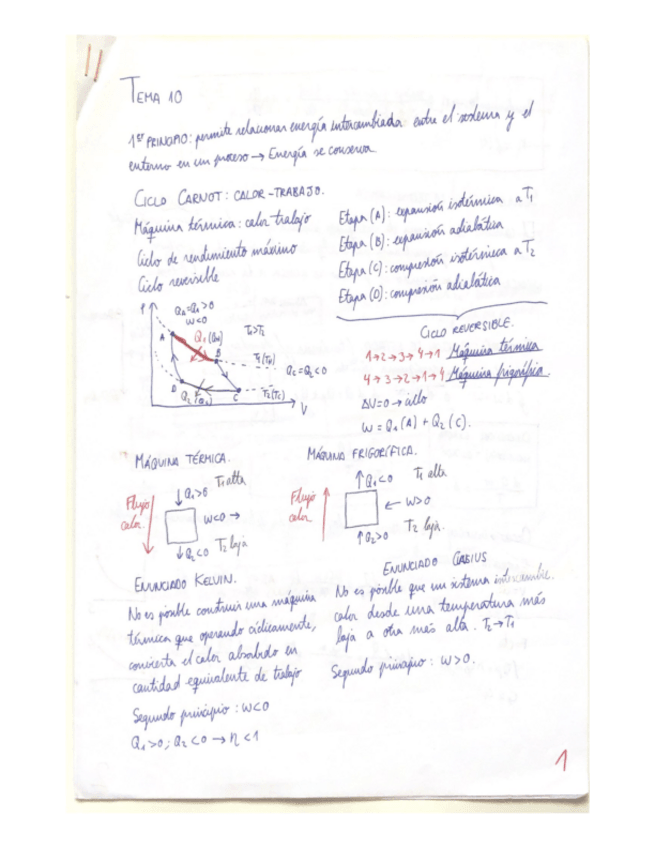 TEMA 10
1er PRINCIPIO: permite relacionar energía intercambiada entre el sistema y el
entorno en un proceso → Energía se conserva
CICLO CARNOT: CALOR-TRABAJO.
Máquina térmica: calor trabajo
Ciclo de rendimiento máximo
Ciclo reversible
Etapa (A): expansión isotérmica a T1
Etapa (B): expansión adiabática
Etapa (C): compresión isotérmica a T2
Etapa (D): compresión adiabática
CICLO REVERSIBLE.
1→2→3→4→1 Máquina térmica
4→3→2→1→4 Máquina frigorífica.
ΔU=0 → ciclo
W = Q1(A) + Q2(C).
P
QA=Q1>0
W<0
A
Q1
B
QC=Q2<0
D
Q2
C
T2(TC)
V
MÁQUINA TÉRMICA.
Flujo
calor.
Q1>0
T1 alta
W<0 →
Q2<0
T2 baja
MÁQUINA FRIGORÍFICA.
Flujo
calor
Q1<0
T1 alta
← W>0
Q2>0
T2 baja.
ENUNCIADO KELVIN.
No es posible construir una máquina
térmica que operando cíclicamente,
convierta el calor absorbido en
cantidad equivalente de trabajo
Segundo principio: W<0
Q1>0; Q2<0 → η<1
ENUNCIADO
No es posible que un sistema intercambie
calor desde una temperatura más
baja a otra más alta. T2→T1
Segundo principio: W>0.
1